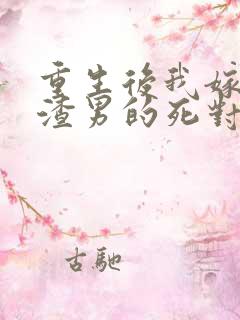 重生後我嫁
渣男的死對
古馳